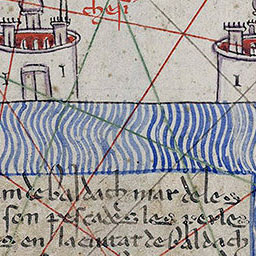 chesi
m de baldach mar de les
son pescades les perles
s en la ciutat de baldach